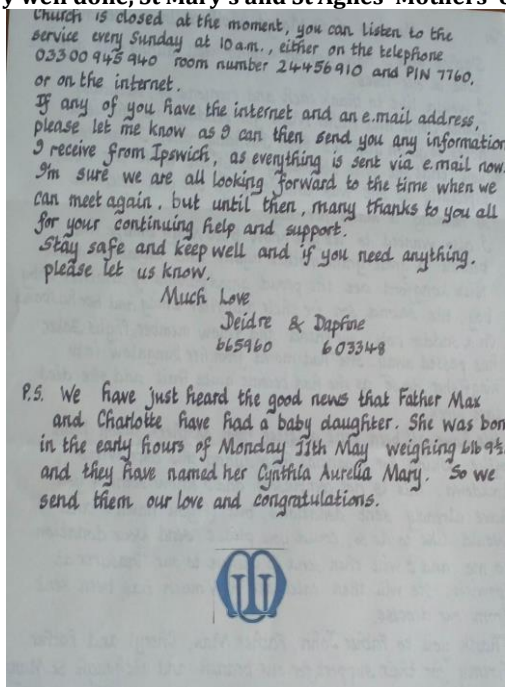 well done, St Mary's and St Agnes' Mothers'
Church is closed at the moment, you can listen to the
service every Sunday at 10am., either on the telephone
03300 945 940 room number 24456910 and PIN 7760.
or on the internet.
If any of you have the internet and an e.mail address,
please let me know as I can then send you any information
I receive from Ipswich, as everything is sent via e.mail now.
I'm sure we are all looking forward to the time when we
can meet again, but until then, many thanks to you all
for your continuing help and support.
Stay safe and keep well and if you need anything,
please let us know.
Much Love
Deidre & Daphne
665960 603348
P.S. We have just heard the good news that Father Max
and Charlotte have had a baby daughter. She was born
in the early hours of Monday 11th May weighing 6lb 9½
and they have named her Cynthia Aurelia Mary. So we
send them our love and congratulations.